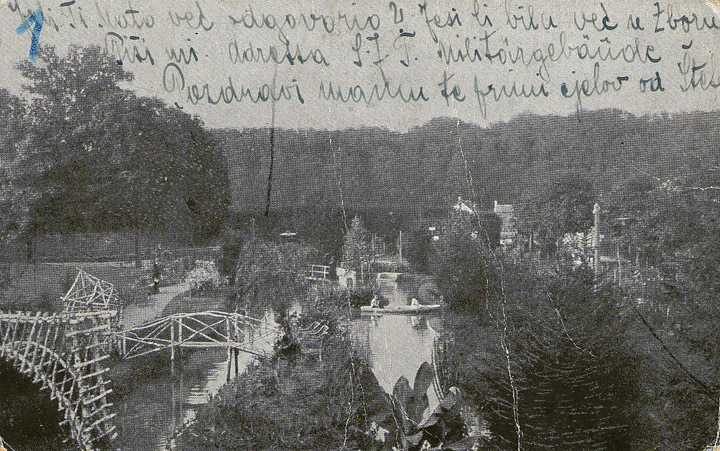 Ti Mato već odgovorio? Jesi li bila već u Zboru
Piši mi. adressa S.J.T. Militärgebäude
Pozdravi mamu te primi cjelov od
1